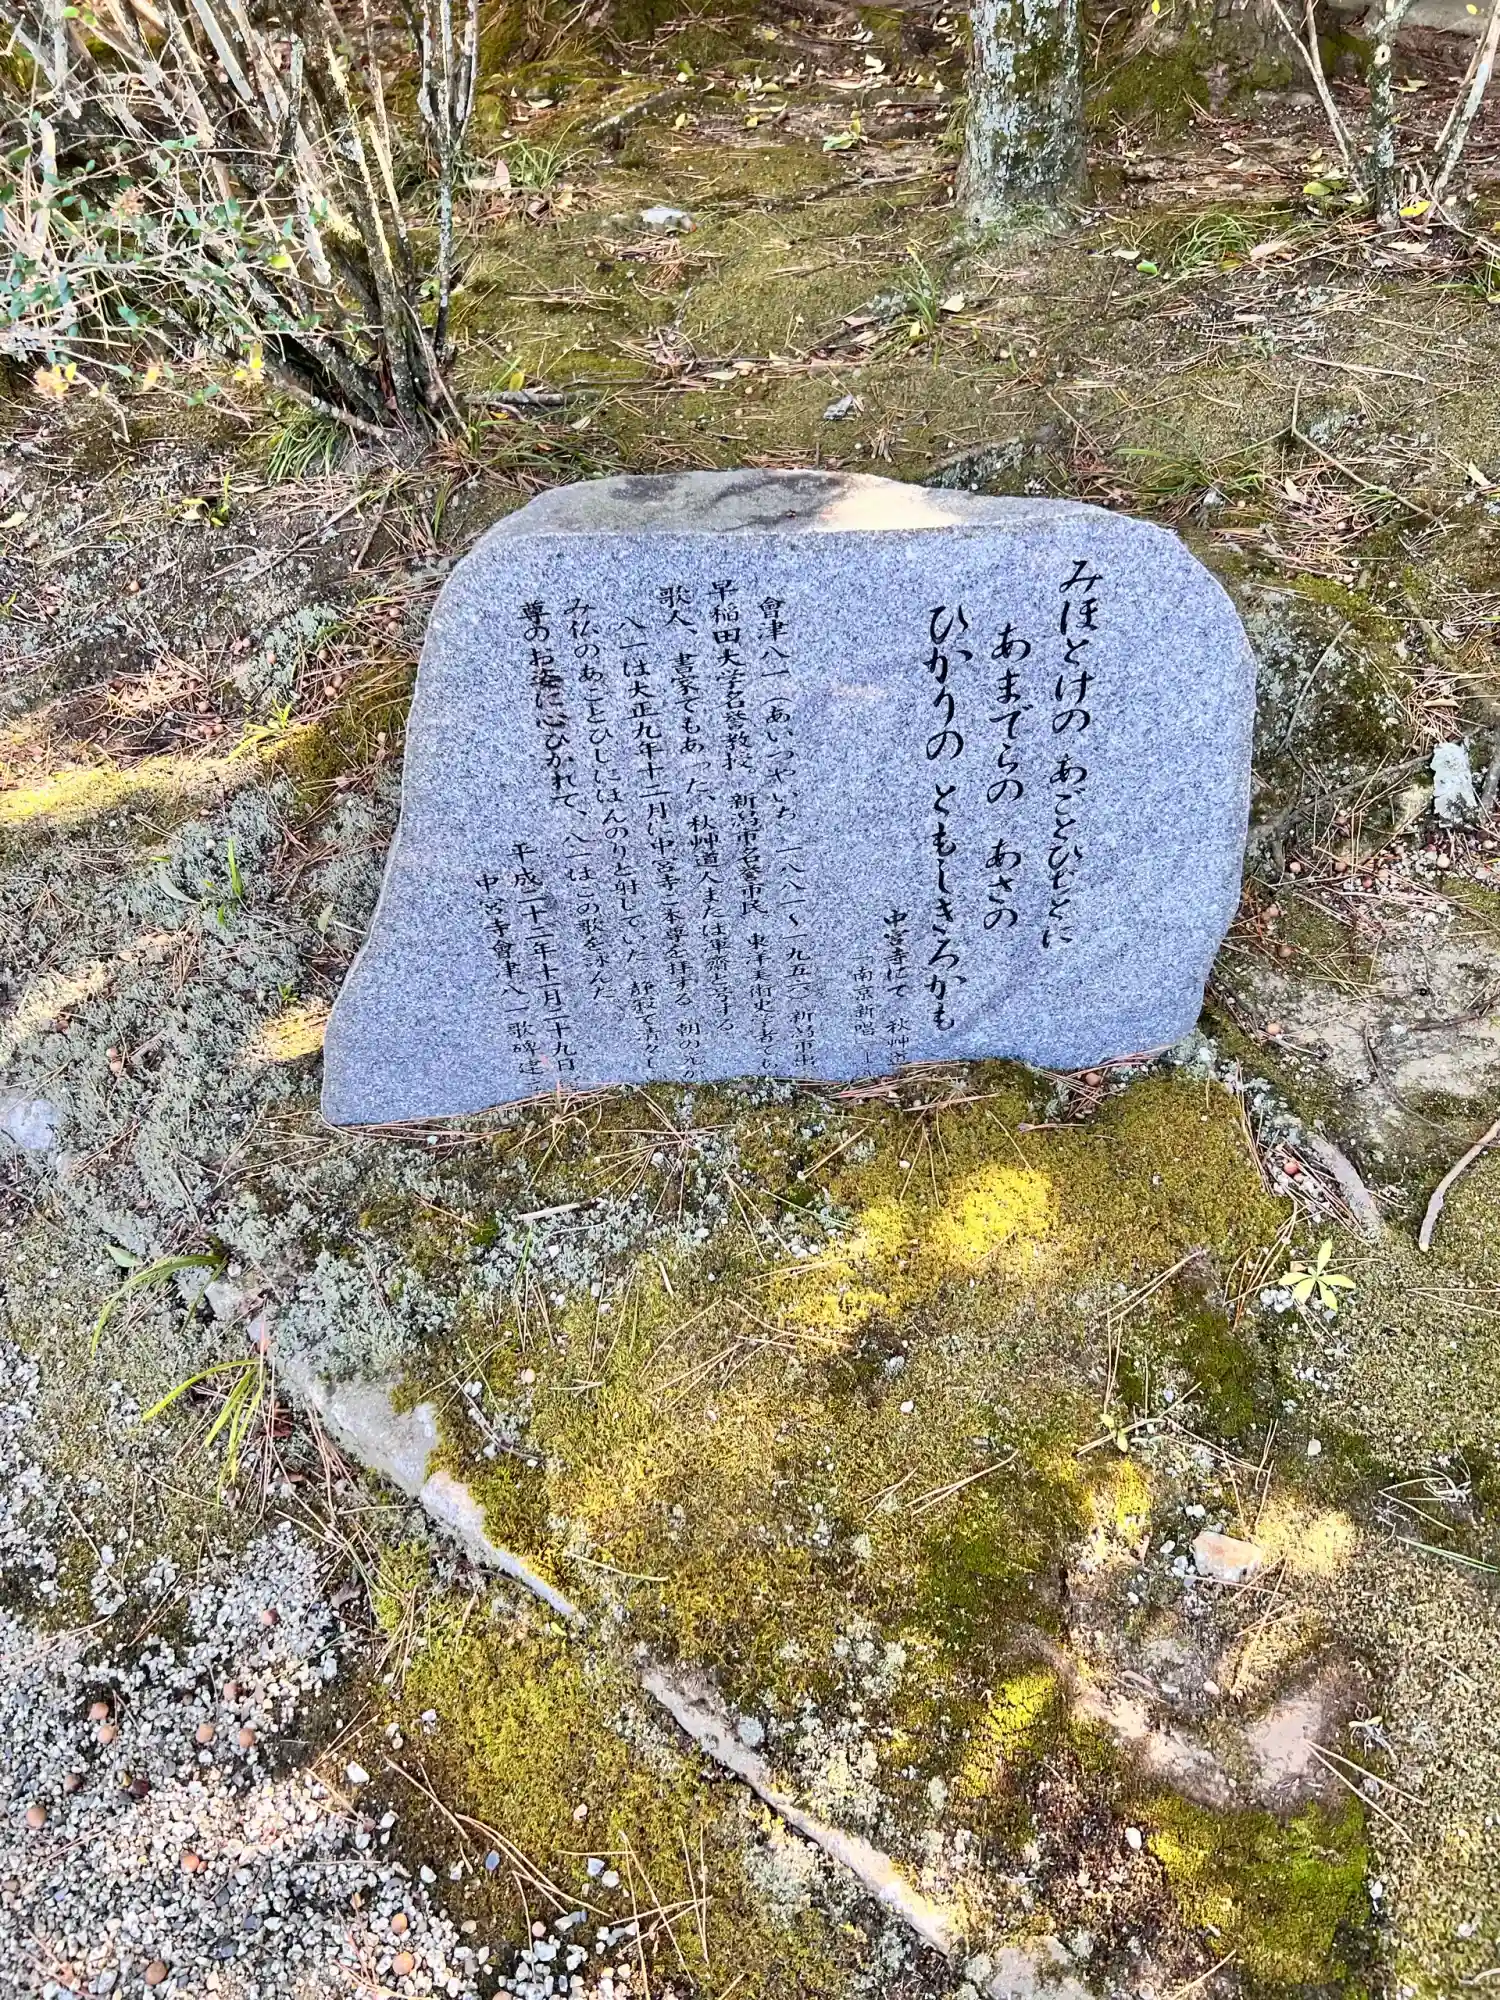 みほとけの あごとひぢとに
あまでらの あさの
ひかりの ともしきろかも
中宮寺にて 秋艸道
「南京新唱」
會津八一(あいづやいち 一八八一〜一九五六)新潟市出
早稲田大学名誉教授。新潟市名誉市民 東洋美術史学者であ
歌人、書家でもあった、秋艸道人または渾齋と号する。
八一は大正九年十二月に中宮寺ご本尊を拝する 朝の光が
み仏のあごとひじにほんのりと射していた 静寂で清々し
尊のお姿に心ひかれて、八一はこの歌を詠んだ
平成二十二年十一月二十九日
中宮寺會津八一歌碑建